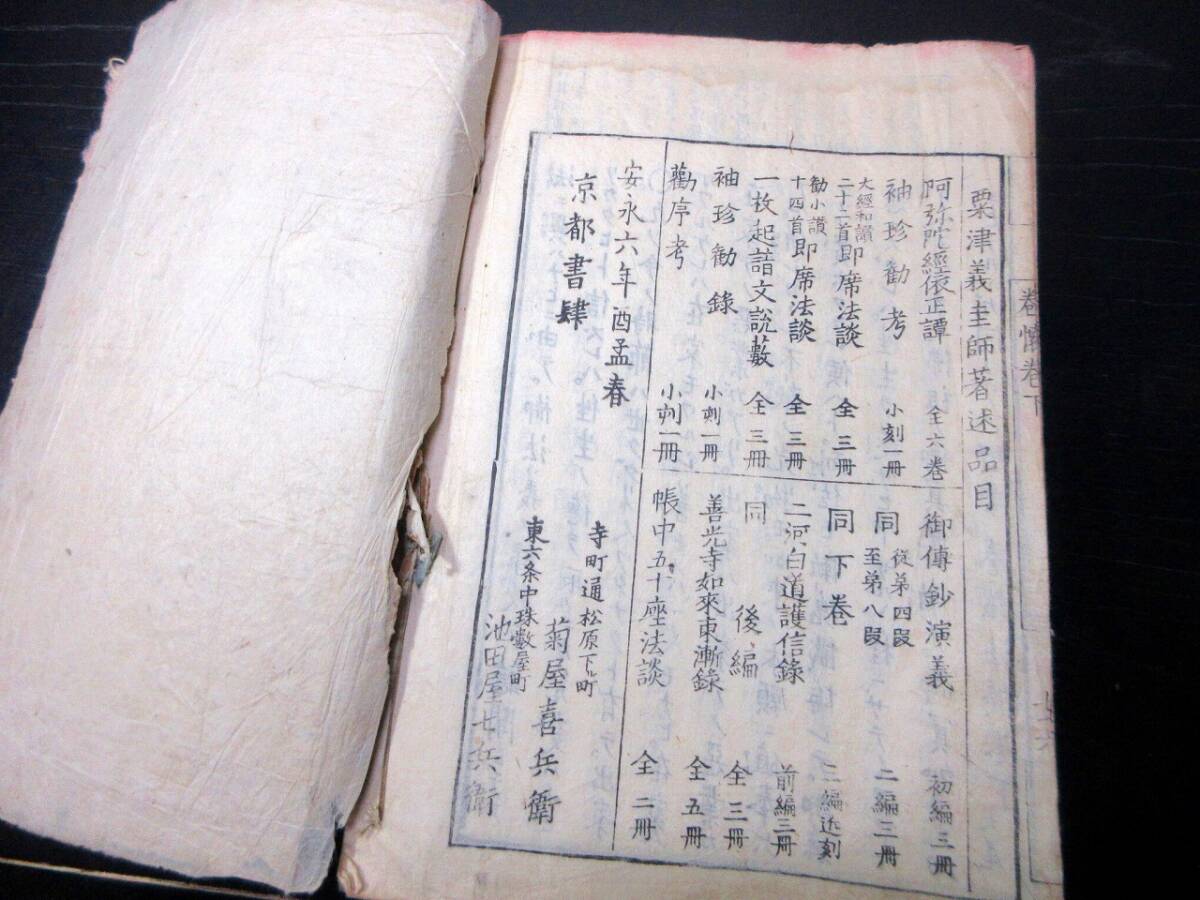 粟津義圭師著述品目
阿弥陀經依正譚 全六巻
袖珍勧考 小刻一冊
大經和讃二十二首即席法談 全三冊
勧小讃十四首即席法談 全三冊
一枚起請文説藪 全三冊
袖珍勧錄 小刺一冊
勸序考 小刺一冊
御傳鈔演義 初編三冊
同 従第四段至第八段 二編三冊
同下巻 三編近刻
二河白道護信錄 前編三冊
同 後編 全三冊
善光寺如來東漸錄 全五冊
帳中五十座法談 全二冊
安永六年酉孟春
京都書肆
寺町通松原下ル町
菊屋喜兵衛
東六条中珠數屋町
池田屋七兵衛
巻下